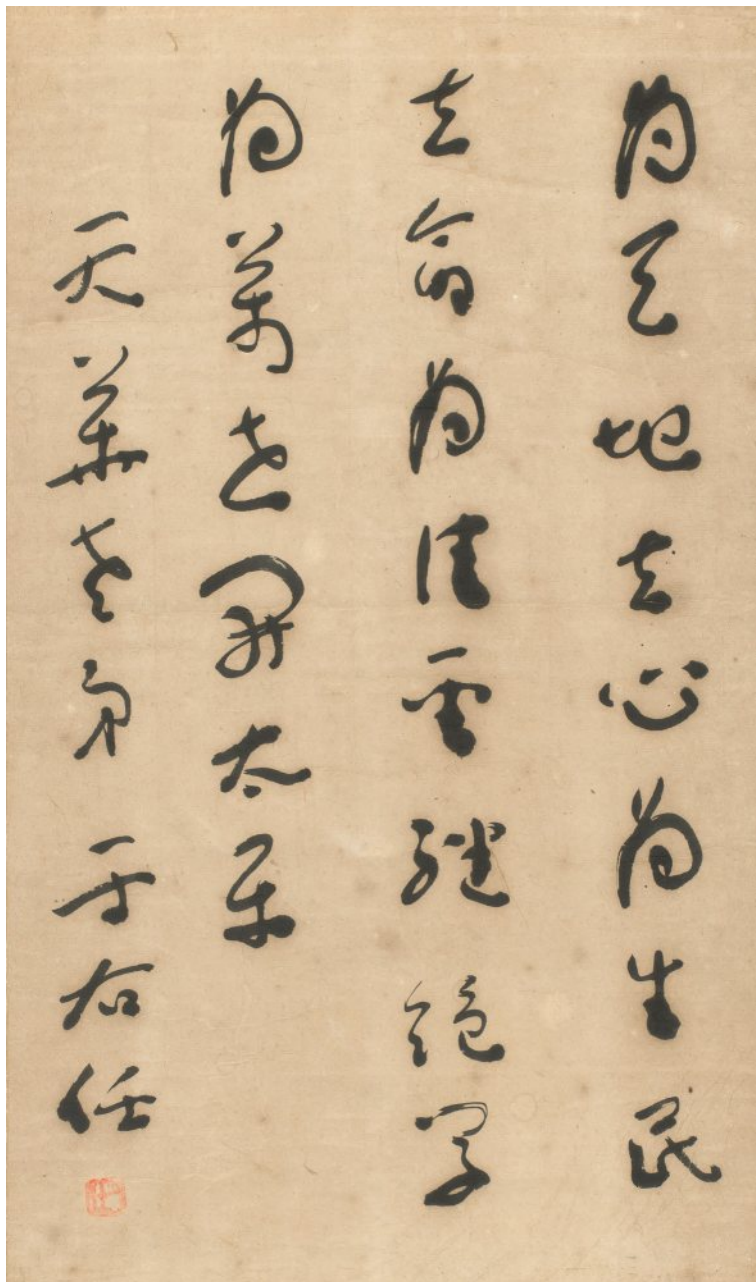 為天地立心為生民
立命為往聖繼絕學
為萬世開太平
天華老弟 于右任